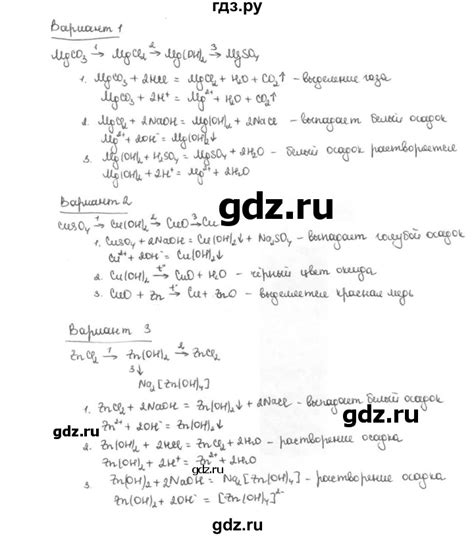 гдз.ру
Вариант 1
MgCO₃ →¹ MgCl₂ →² Mg(OH)₂ →³ MgSO₄
1. MgCO₃ + 2HCl = MgCl₂ + H₂O + CO₂↑ – выделение газа
MgCO₃ + 2H⁺ = Mg²⁺ + H₂O + CO₂↑
2. MgCl₂ + 2NaOH = Mg(OH)₂↓ + 2NaCl – выпадает белый осадок
Mg²⁺ + 2OH⁻ = Mg(OH)₂↓
3. Mg(OH)₂ + H₂SO₄ = MgSO₄ + 2H₂O – белый осадок растворяется
Mg(OH)₂ + 2H⁺ = Mg²⁺ + 2H₂O
Вариант 2
gdz.ru
CuSO₄ →¹ Cu(OH)₂ →² CuO →³ Cu
1. CuSO₄ + 2NaOH = Cu(OH)₂↓ + Na₂SO₄ – выпадает голубой осадок
Cu²⁺ + 2OH⁻ = Cu(OH)₂↓
2. Cu(OH)₂ →t° CuO + H₂O – чёрный цвет оксида
3. CuO + Zn →t° Cu + ZnO – выделяется красная медь
Вариант 3
ZnCl₂ →¹ Zn(OH)₂ →² ZnCl₂
3↓
Na₂[Zn(OH)₄]
1. ZnCl₂ + 2NaOH = Zn(OH)₂↓ + 2NaCl – выпадает белый осадок
gdz.ru
Zn²⁺ + 2OH⁻ = Zn(OH)₂↓
gdz.ru
2. Zn(OH)₂ + 2HCl = ZnCl₂ + 2H₂O – растворение осадка
Zn(OH)₂ + 2H⁺ = Zn²⁺ + 2H₂O
gdz.ru
3. Zn(OH)₂ + 2NaOH = Na₂[Zn(OH)₄] – растворение осадка
Zn(OH)₂ + 2OH⁻ = [Zn(OH)₄]²⁻
gdz.ru